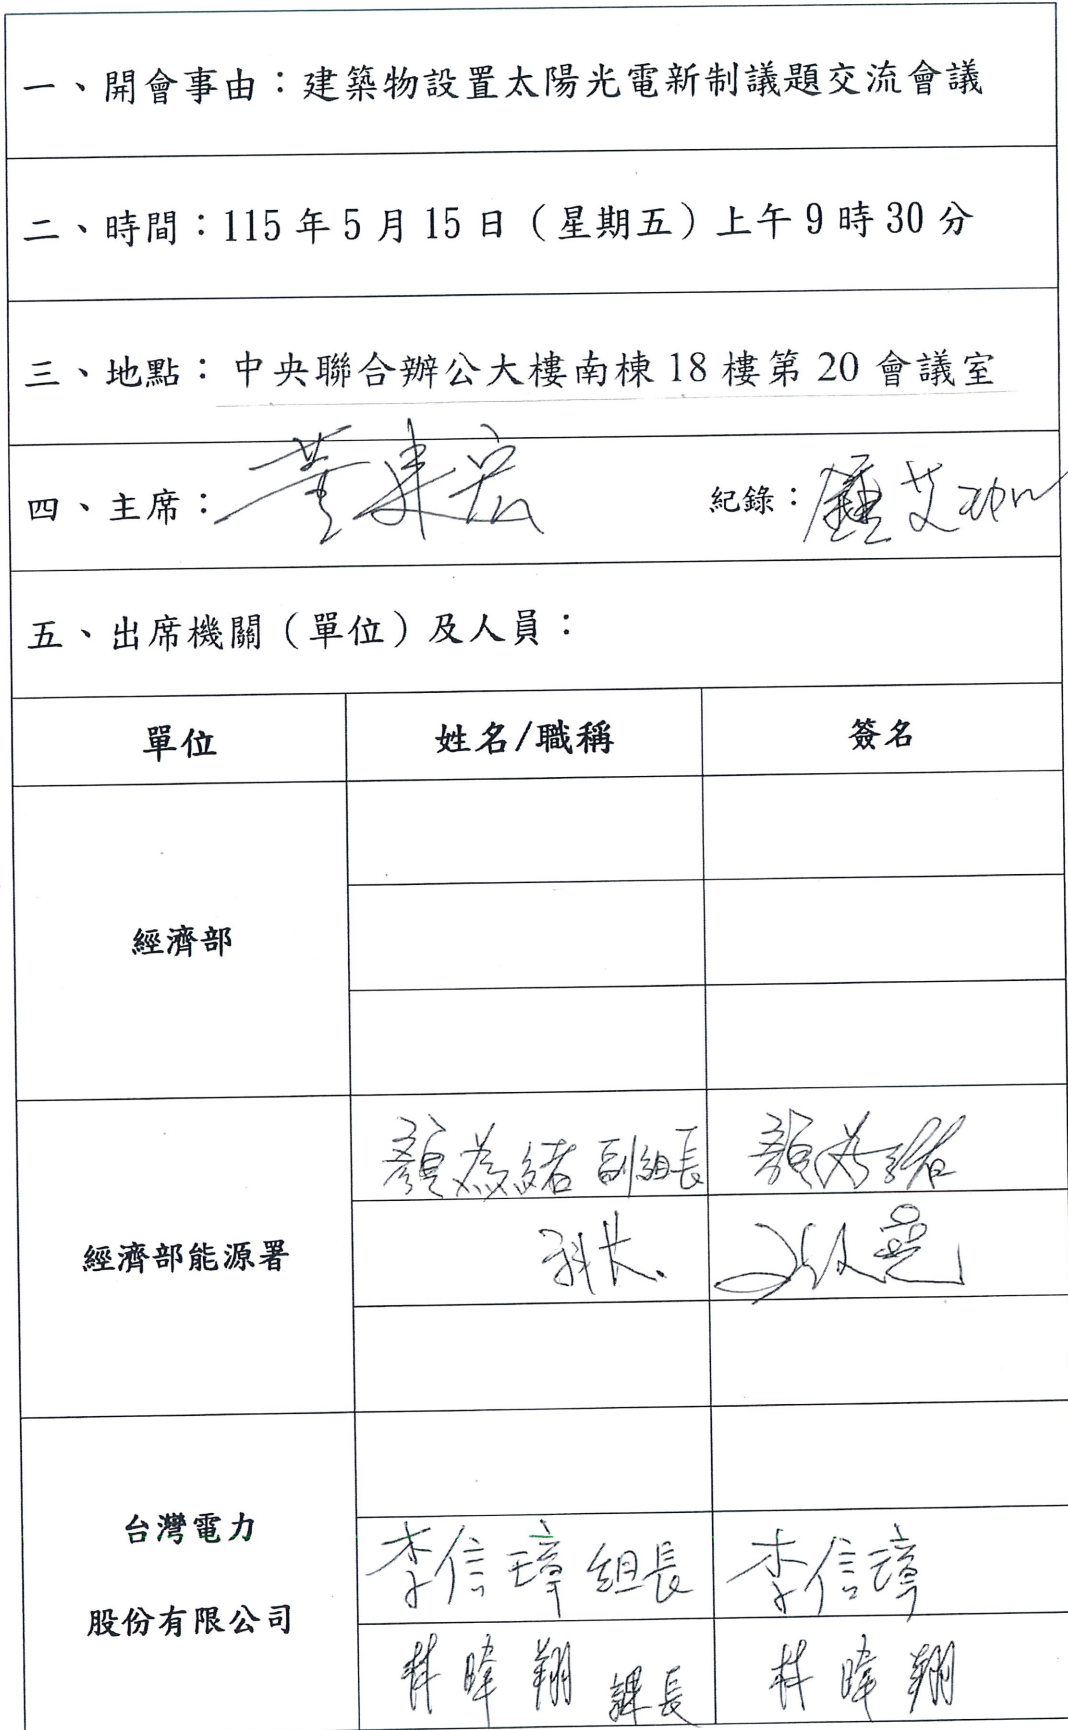 一、開會事由：建築物設置太陽光電新制議題交流會議
二、時間：115年5月15日（星期五）上午9時30分
三、地點：中央聯合辦公大樓南棟18樓第20會議室
四、主席：董建宏 紀錄：鍾艾
五、出席機關（單位）及人員：
單位 姓名/職稱 簽名
經濟部
顏為緒 副組長 顏為緒
經濟部能源署 科長
台灣電力
李信璋 組長 李信璋
股份有限公司
林暐翔 課長 林暐翔